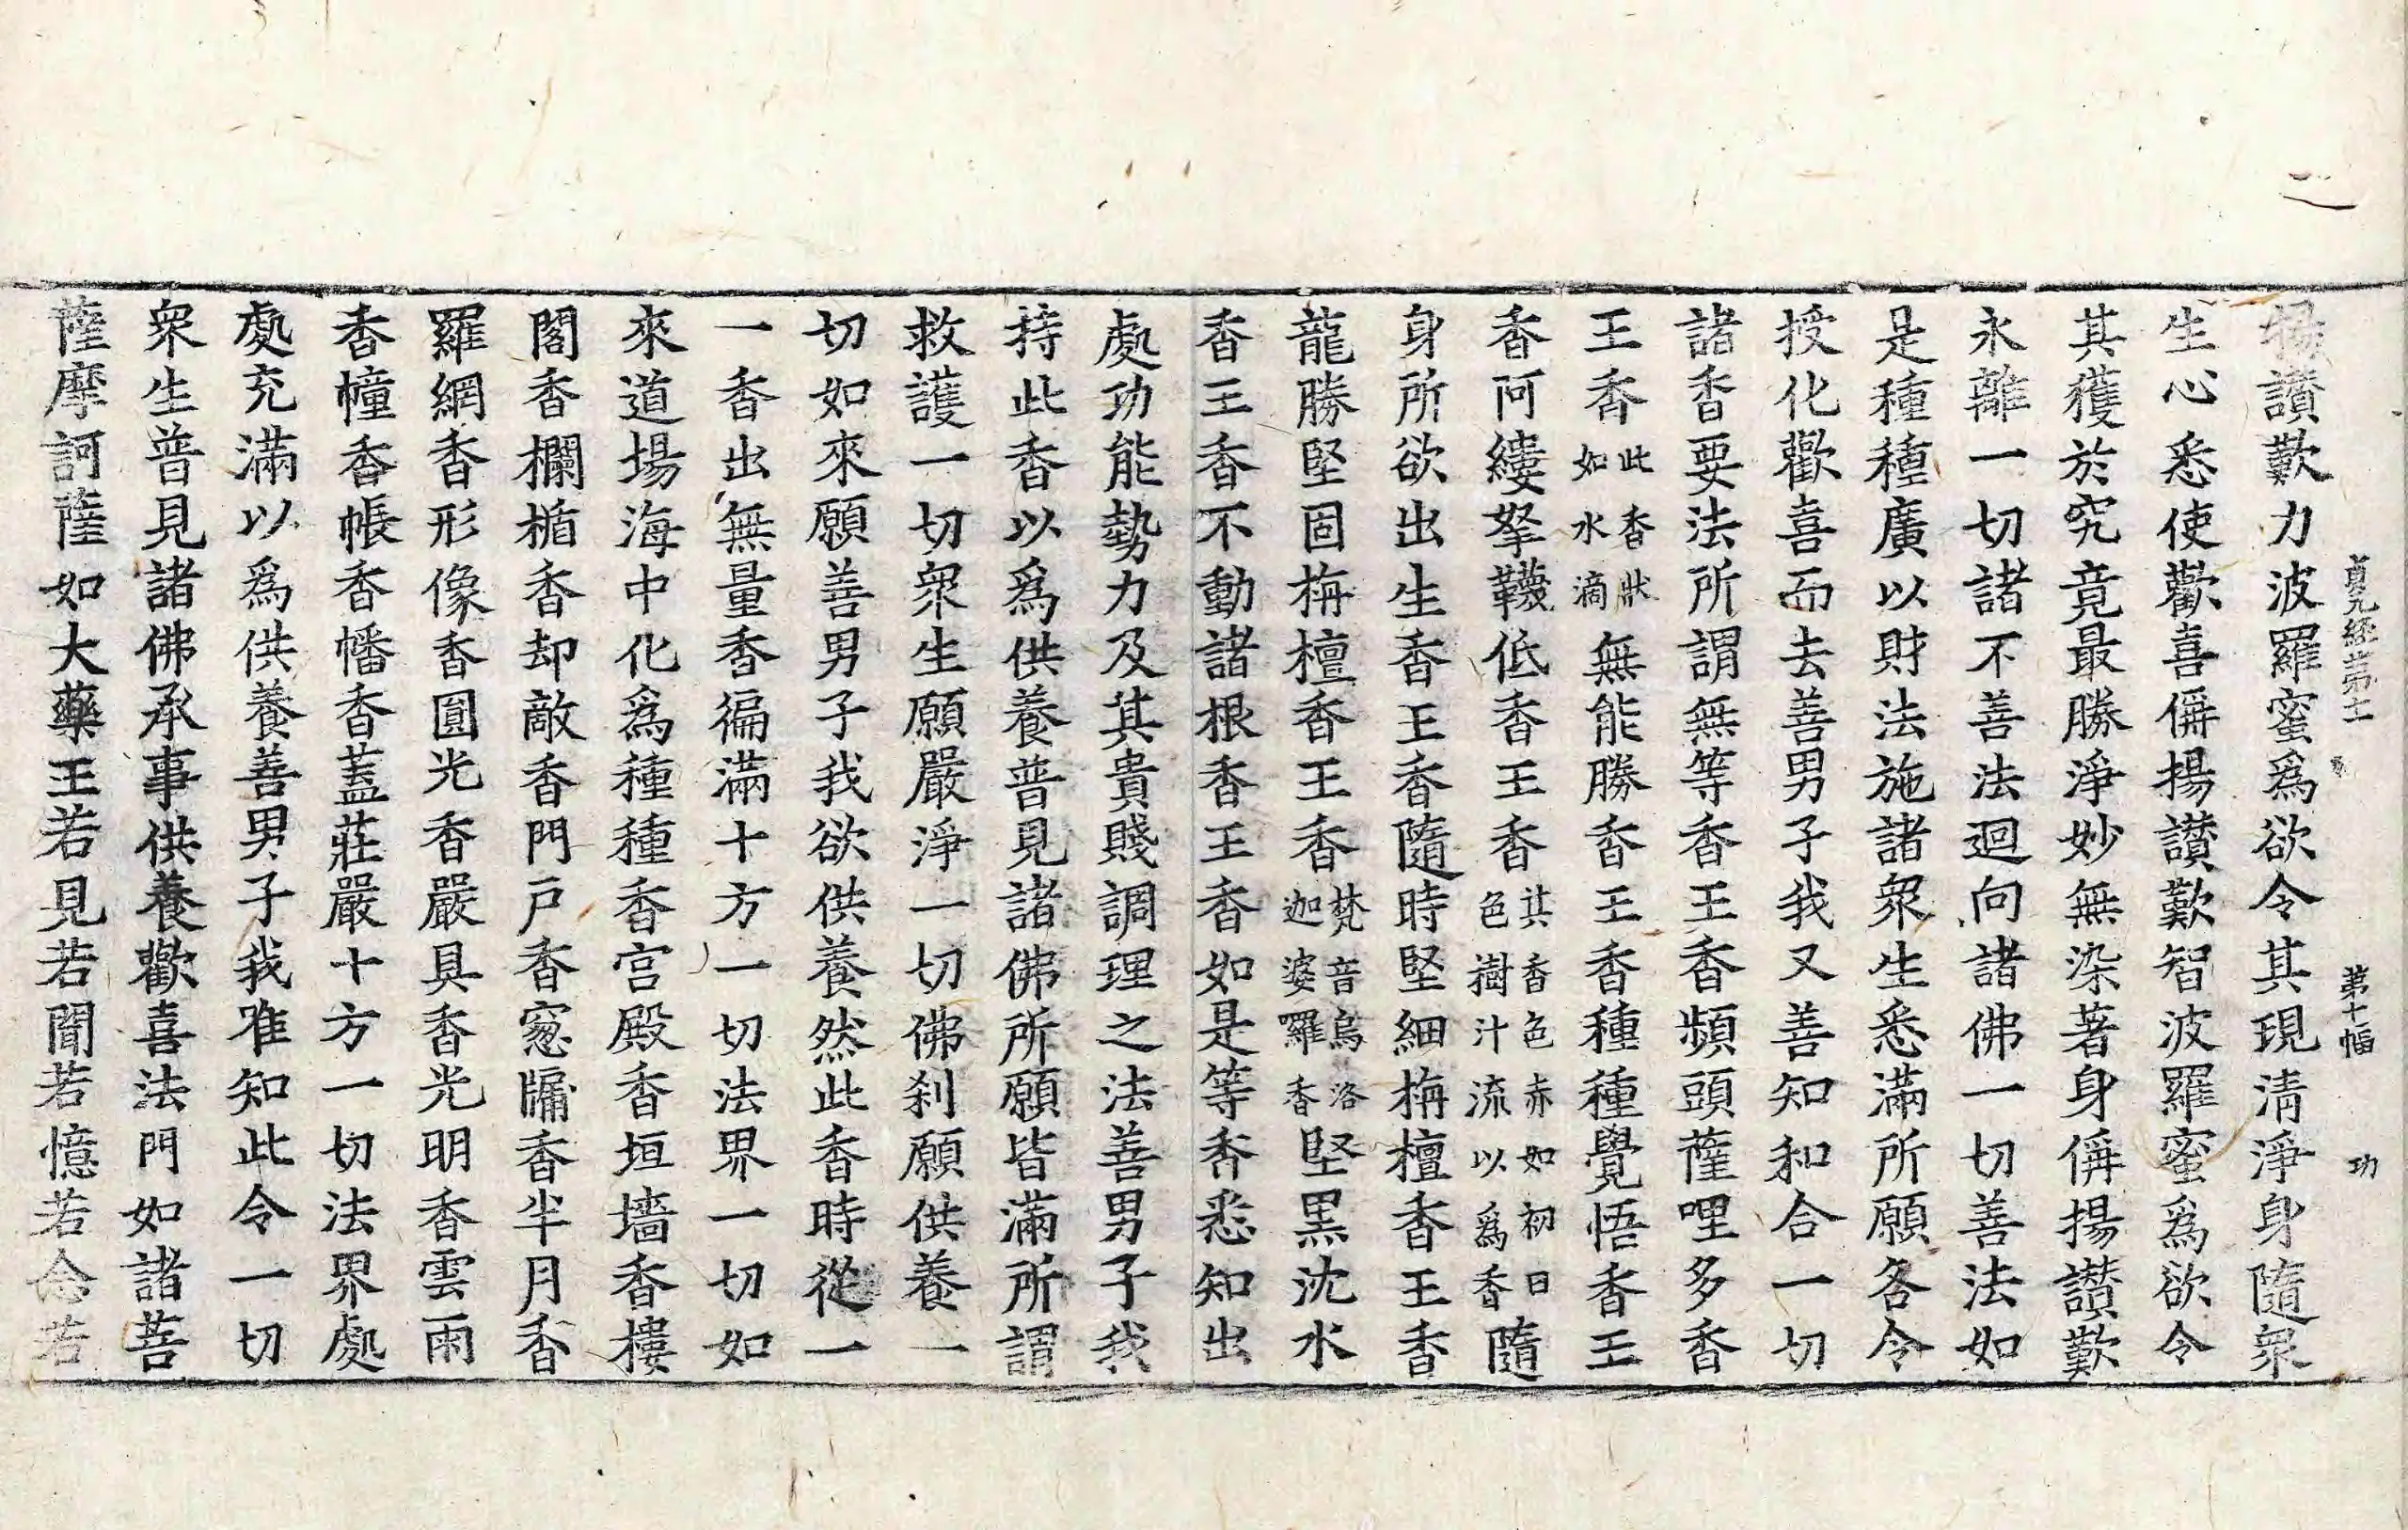 貞元經第十一 第十幅 功
揚讃歎力波羅蜜爲欲令其現清淨身隨衆
生心悉使歡喜偁揚讃歎智波羅蜜爲欲令
其獲於究竟最勝淨妙無染著身偁揚讃歎
永離一切諸不善法迴向諸佛一切善法如
是種種廣以財法施諸衆生悉滿所願各令
授化歡喜而去善男子我又善知和合一切
諸香要法所謂無等香王香頻頭薩哩多香
王香此香狀如水滴無能勝香王香種種覺悟香王
香阿縷拏韈低香王香其香色赤如初日色樹汁流以爲香隨
身所欲出生香王香隨時堅細栴檀香王香
龍勝堅固栴檀香王香梵音烏洛迦婆囉香堅黑沈水
香王香不動諸根香王香如是等香悉知出
處功能勢力及其貴賤調理之法善男子我
持此香以爲供養普見諸佛所願皆滿所謂
救護一切衆生願嚴淨一切佛刹願供養一
切如來願善男子我欲供養然此香時從一
一香出無量香徧滿十方一切法界一切如
來道場海中化爲種種香宮殿香垣墻香樓
閣香欄楯香却敵香門戸香窓牖香半月香
羅網香形像香圓光香嚴具香光明香雲雨
香幢香帳香幡香蓋莊嚴十方一切法界處
處充滿以爲供養善男子我唯知此令一切
衆生普見諸佛承事供養歡喜法門如諸菩
薩摩訶薩如大藥王若見若聞若憶若念若